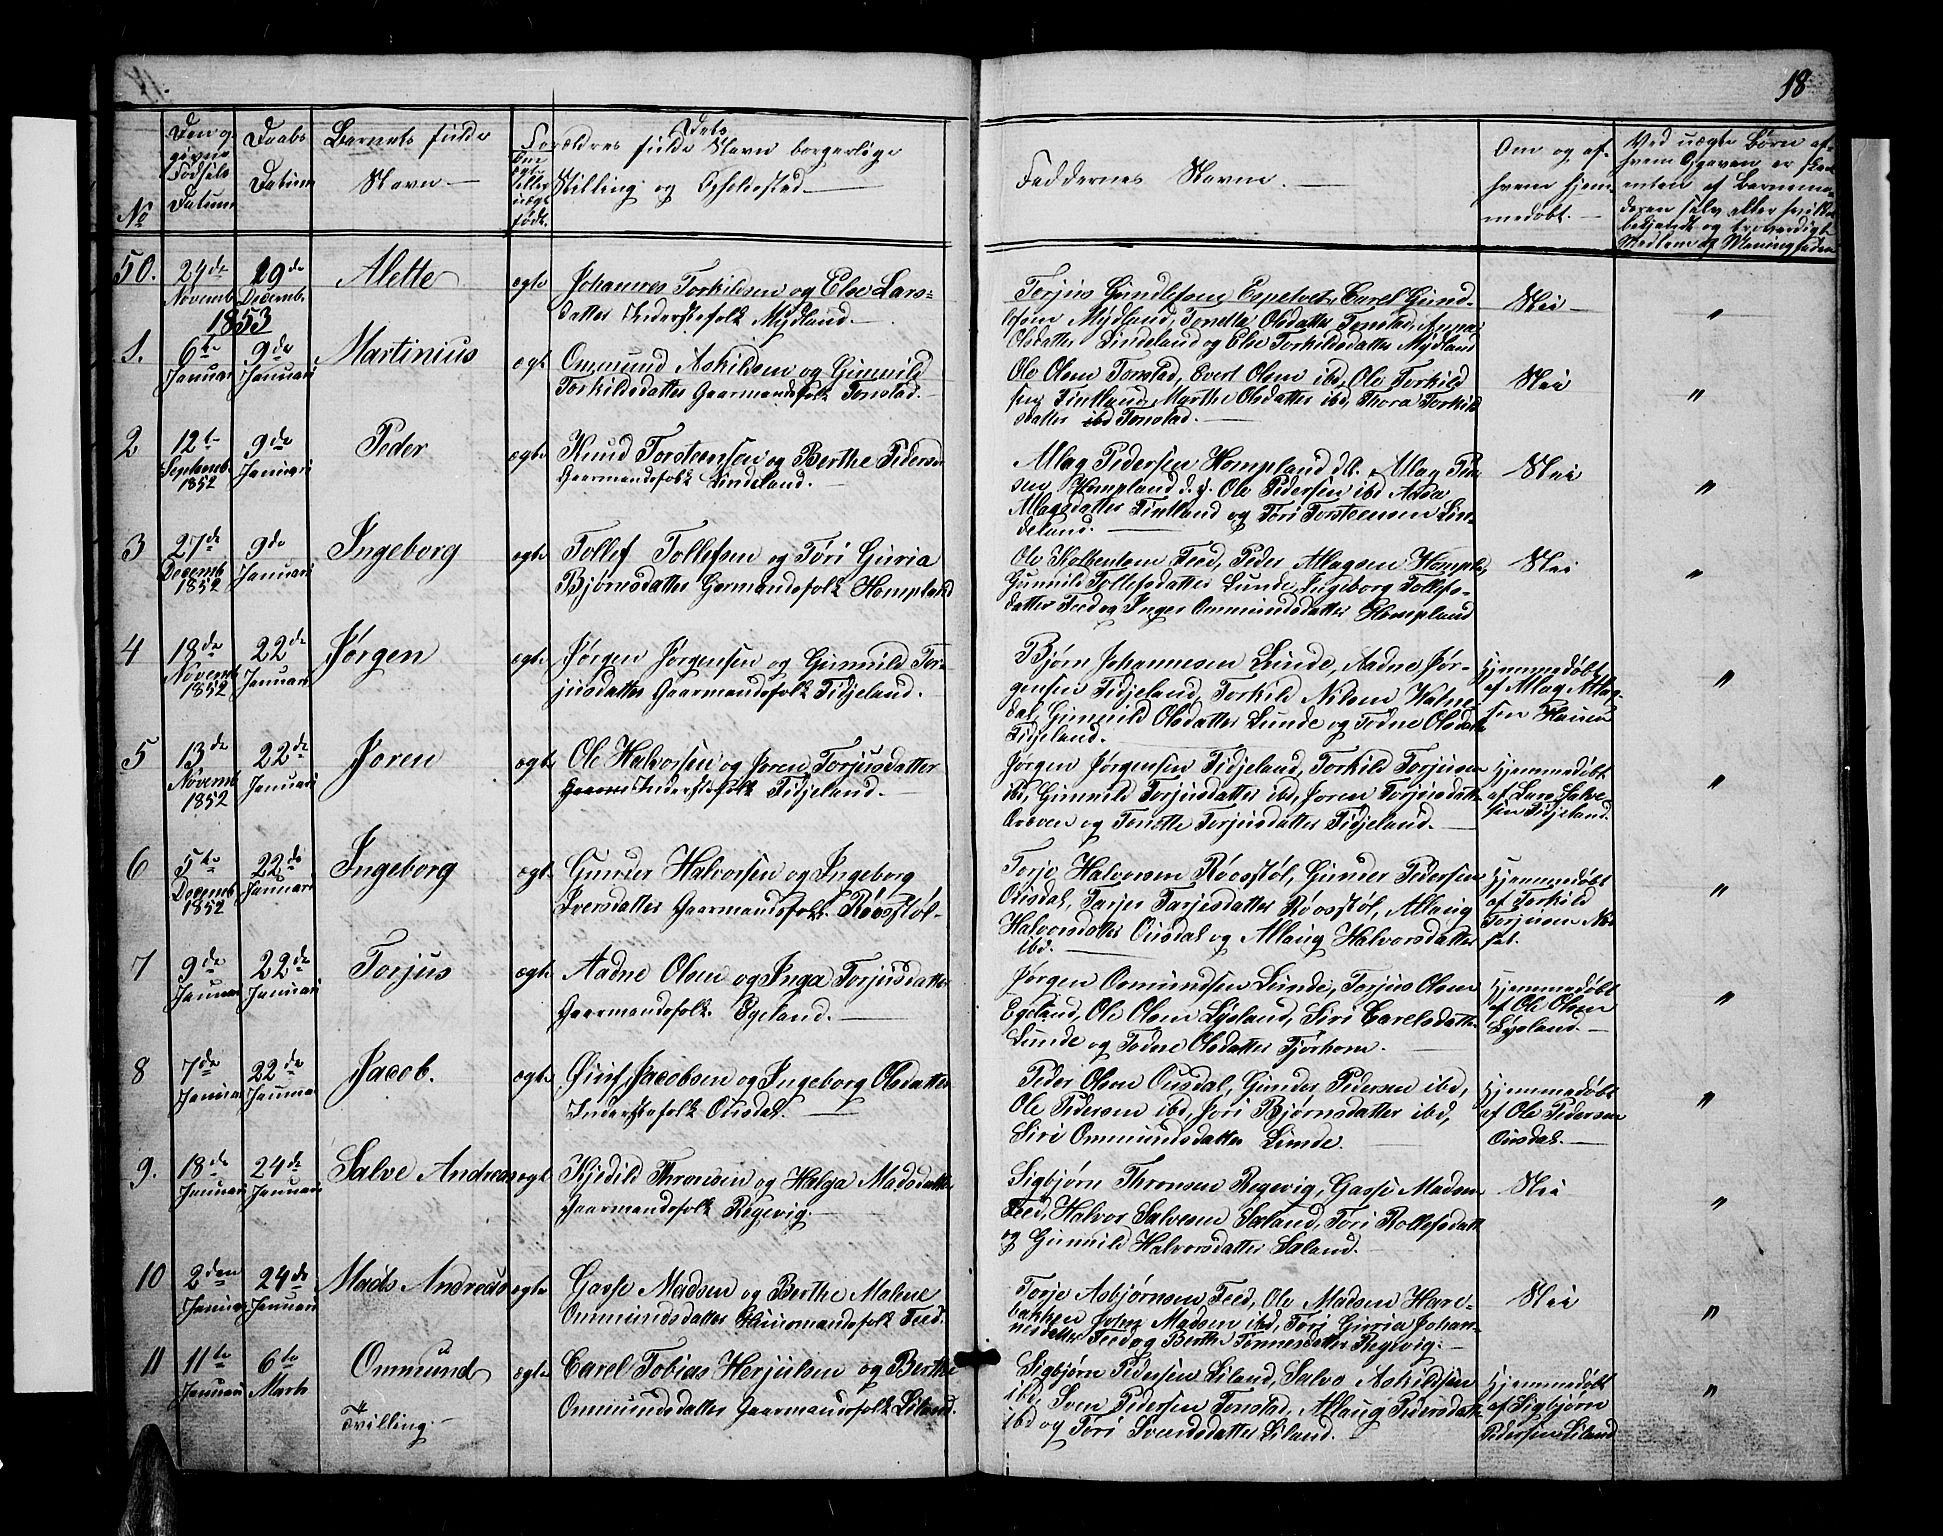 18
No
Den og givne Fødsels Datum
Daabs Datum
Barnets fulde Navn.
Om ægte eller uægte født.
Forældres fulde Navn borgerlige
Stilling og Opholdssted.
Faddernes Navne.
Om og af hvem hjemmedøbt.
Ved uægte Børn af
50. 24de Novemb. 19de Decemb. Alette ægte Johannes Torkildsen og Else Lars-
datter Inderstefolk Mydland.
Torjus Gundlefsen Espetvet, Carel Gund-
lefsen Mydland, Tonette Olsdatter Tonstad, Anna
Olsdatter Lindeland og Else Torkildsdatter Mydland
Nei "
1853
1. 6te Januar 9de Januari Martinius ægt. Ommund Askildsen og Gunnild
Torkildsdatter Gaarmandsfolk Tonstad.
Ole Olsen Tonstad, Evert Olsen ibd, Ole Torkild
sen Fintland, Marthe Olsdatter ibd, Thora Torkild
sdatter ibd Tonstad.
Nei "
2 12te Septemb. 1852 9de Januari Peder ægte Knud Torsteensen og Berthe Pedersd
Gaarmandsfolk Lindeland.
Allag Pedersen Hompland d.æ. Allag Peder
sen Hompland d.y. Ole Pedersen ibd Aasa
Allagsdatter Fintland og Tori Torsteensen Lin-
deland.
Nei "
3 27de Decemb 1852 9de Januari Ingeborg ægte Tollef Tollefsen og Tori Guria
Bjørnsdatter Garmandsfolk Hompland
Ole Kolbentsen Feed, Peder Allagsen Hompla,
Gunnild Tollefsdatter Lunde, Ingeborg Tollefs-
datter Feed og Inger Ommundsdatter Hompland
Nei "
4 18de Novemb 1852 22de Januari Jørgen ægte Jørgen Jørgensen og Gunnild Tor-
jusdatter Gaarmandsfolk Tidjeland.
Bjørn Johannesen Lunde, Aadne Jør-
gensen Tidjeland, Torkild Nilsen Watne-
dal, Gunnild Olsdatter Lunde og Todne Olsdatt
Tidjeland.
Hjemmedøbt
af Allag Allag-
sen Hauen "
5 13de Novemb 1852 22de Januari Joren ægte Ole Halvorsen og Joren Torjusdatter
Inderstefolk Tidjeland.
Jørgen Jørgensen Tidjeland, Torkild Torjusen
ibd, Gunnild Torjusdatter ibd, Joren Torjusdatt
Aroven og Tonette Torjusdatter Tidjeland.
Hjemmedøbt
af Lars Salve
sen Tidjeland. "
6 5te Decemb 1852 22de Januari Ingeborg ægt. Gunder Halvorsen og Ingeborg
Iversdatter Gaarmandsfolk. Røosstøl-
Torje Halvorsen Røosstøl, Gunder Pedersen
Ousdal, Tarjer Tarjesdatter Røosstøl, Allaug
Halvorsdatter Ousdal og Allaug Halvorsdatter
ibd.
Hjemmedøbt
af Torkild
Torjusen "
7 9de Januar 22de Januari Torjus ægte Aadne Olsen og Inga Torjusdatter
Gaarmandsfolk. Egeland.
Jørgen Osmundsen Lunde, Torjus Olsen
Egeland, Ole Olsen Lyseland, Siri Carelsdatter
Lunde og Todne Olsdatter Tjørhom.
Hjemmedøbt
af Ole Olsen
Lyseland. "
8 7de Januar 22de Januar Jacob. ægte Jacobsen og Ingeborg Olsdatter
Inderstefolk Ousdal.
Peder Olsen Ousdal, Gunder Pedersen ibd,
Ole Pedersen ibd, Jøri Bjørnsdatter ibd,
Siri Ommundsdatter Lunde.
Hjemmedøbt
af Ole Pedersen
Ousdal. "
9. 18de Januari 24de Januari Salve Andreas ægt. Kjedild Thronsen og Helga Madsdatter
Gaarmandsfolk Regevig.
Sigbjørn Thronsen Regevig, Gasse Madsen
Feed, Halvor Salvesen Sæland, Tori Rollefsdatt
og Gunnild Halvorsdatter Sæland.
Nei "
10 2den Januar 24de Januari Mads Andreas ægte Gasse Madsen og Berthe Malene
Ommundsdatter Huusmandsfolk Feed.
Torje Asbjørnsen Feed, Ole Madsen Hare-
bakken John Madsen ibd, Tori Guria Johan-
nesdatter Feed og Berthe Tonnesdatter Regevig.
Nei "
11 11te Januari 6te Marts Ommund ægte Carel Tobias Herjulsen og Berthe
Tvilling.
Ommundsdatter Gaarmandsfolk Liland.
Sigbjørn Pedersen Liland, Salve Askildsen
ibd, Sven Pedersen Tonstad, Allaug Pedersdatt
ibd og Tori Svendsdatter Liland.
Hjemmedøbt
af Sigbjørn
Pedersen Liland "